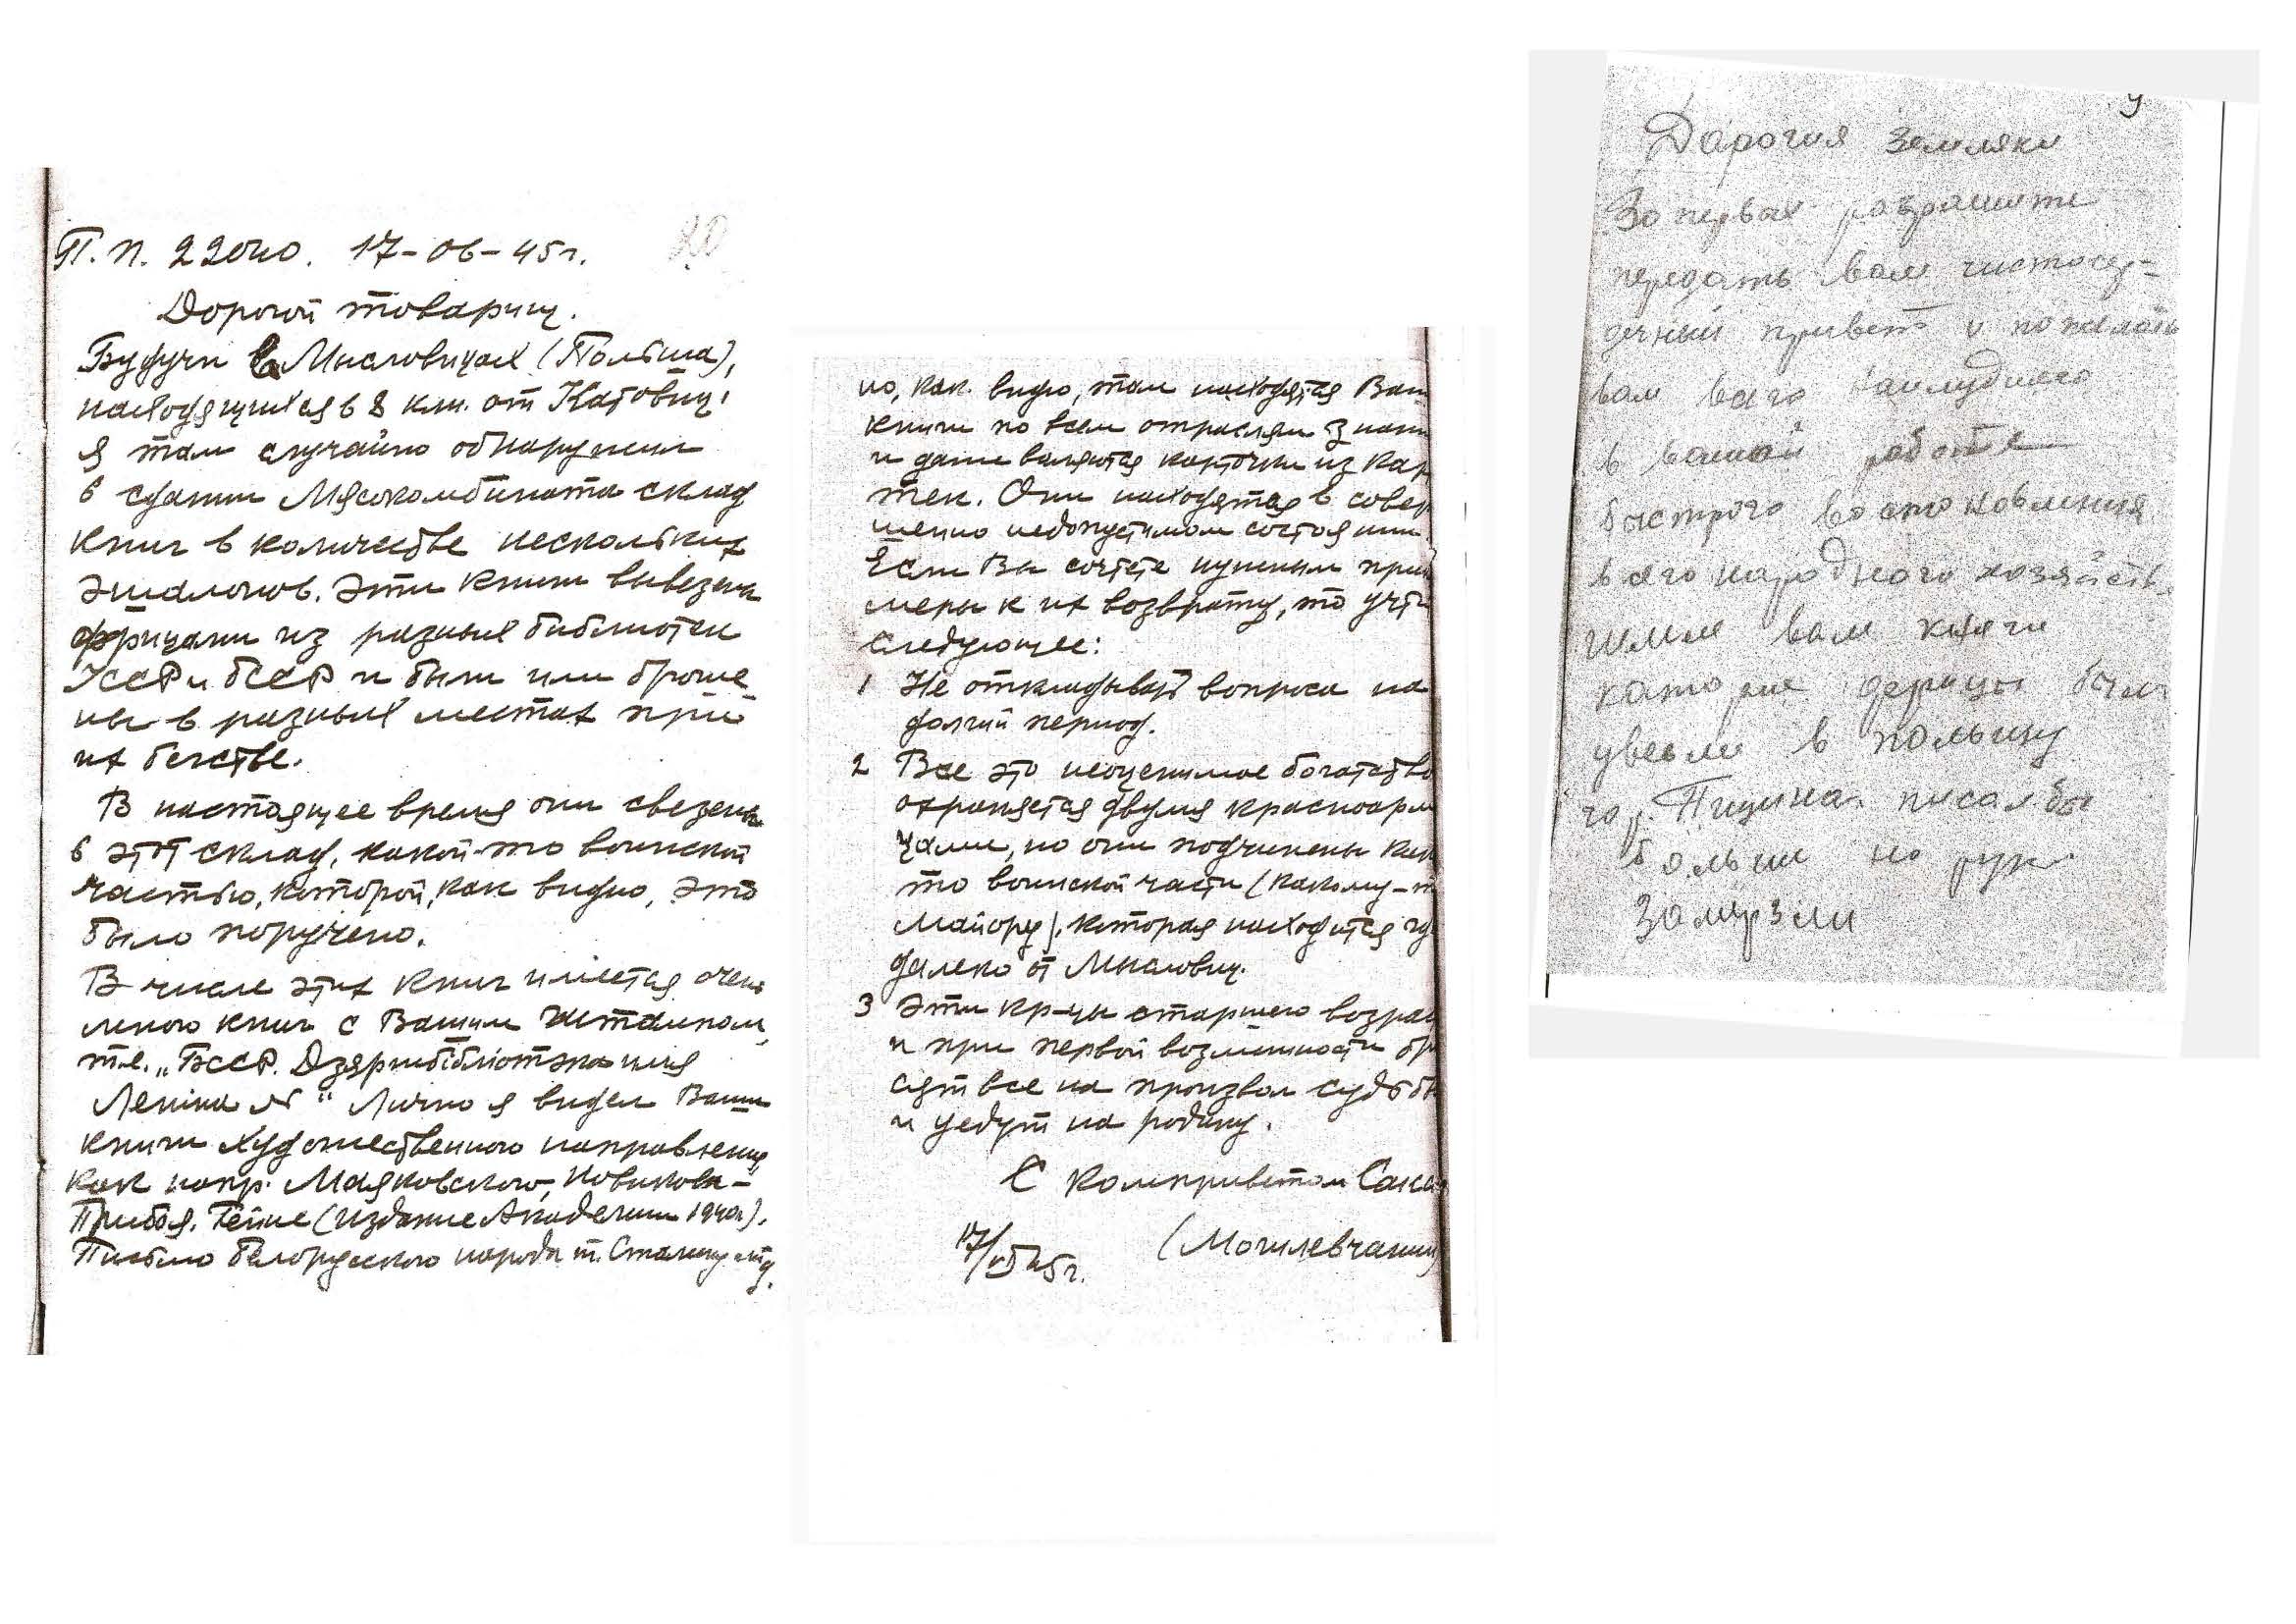 20
П.п. 22040. 17-06-45г.
Дорогой товарищ.
Будучи в Мысловицах (Польша),
находящихся в 8 клм. от Катовиц,
я там случайно обнаружил
в здании Мясокомбината склад
книг в количестве нескольких
эшалонов. Эти книги вывезены
фрицами из разных библиотек
УССР и БССР и были ими броше
ны в разных местах при
их бегстве.
В настоящее время они свезены
в этот склад, какой-то воинской
частью, которой, как видно, это
было поручено.
В числе этих книг имеется очень
много книг с Вашим штампом,
т.е. „БССР. Дзяржбібліотэка імя
Леніна №" Лично я видел Ваши
книги художественного направления,
как напр. Маяковского, Новикова-
Прибоя, Гейне (издание Академии 1940г).
Письмо белорусского народа т. Сталину итд.
но, как видно, там находятся Ваш
книги по всем отраслям знани
и даже валяются карточки из кар
тек. Они находятся в совер
шенно недопустимом состоянии.
Если Вы сочтете нужным прин
меры к их возврату, то учти
следующее:
1 Не откладывать вопроса на
долгий период.
2 Все это неоценимое богатство
охраняется двумя красноарм
цами, но они подчинены как
то воинской части (какому-т
майору), которая находится
далеко от Мысловиц.
3 Эти кр-цы старшего возрас
и при первой возможности бр
сят все на произвол судьбы
и уедут на родину.
С комприветом
(Могилевчанин)
17/VI 45г.
9
Дарогия земляки
Во первых разрашите
передать вам чистосер-
дечный привет и пожелать
вам васго наилудшего
в вашай работе
быстрого востоновления
васго народного хозяйств
шлем вам книги
каторые герицы были
увезли в польшу
гор. Пщина. писал бы
больши но руки
замерзли